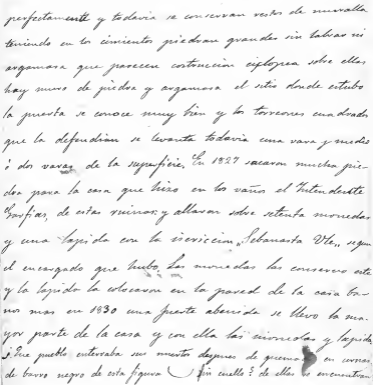 perfectamente y todavia se conservan restos de muralla
teniendo en los cimientos piedras grandes sin labrar ni
argamasa que parecen costrucion ciclopea sobre ellas
hay muro de piedra y argamasa el sitio donde estubo
la puerta se conoce muy bien y los torreones cuadrados
que la defendian se levanta todavia una vara y media
ó dos varas de la superficie. En 1827 sacaron mucha pie-
dra para la casa que hizo en los vaños el Intendente
Garfias, de estas ruinas y allaron sobre setenta monedas
y una lapida con la iscricion "Sebanasta Vle" segun
el encargado que hubo. Las monedas las conservo este
y la lapida la colocaron en la pared de la casa ba-
nos mas en 1830 una fuerte abenida se llevo la ma-
yor parte de la casa y con ella las monedas y lapida
Este pueblo enterraba sus muertos despues de quemados en
de barro negro de esta figura sin cuello? de ellas se encuentran